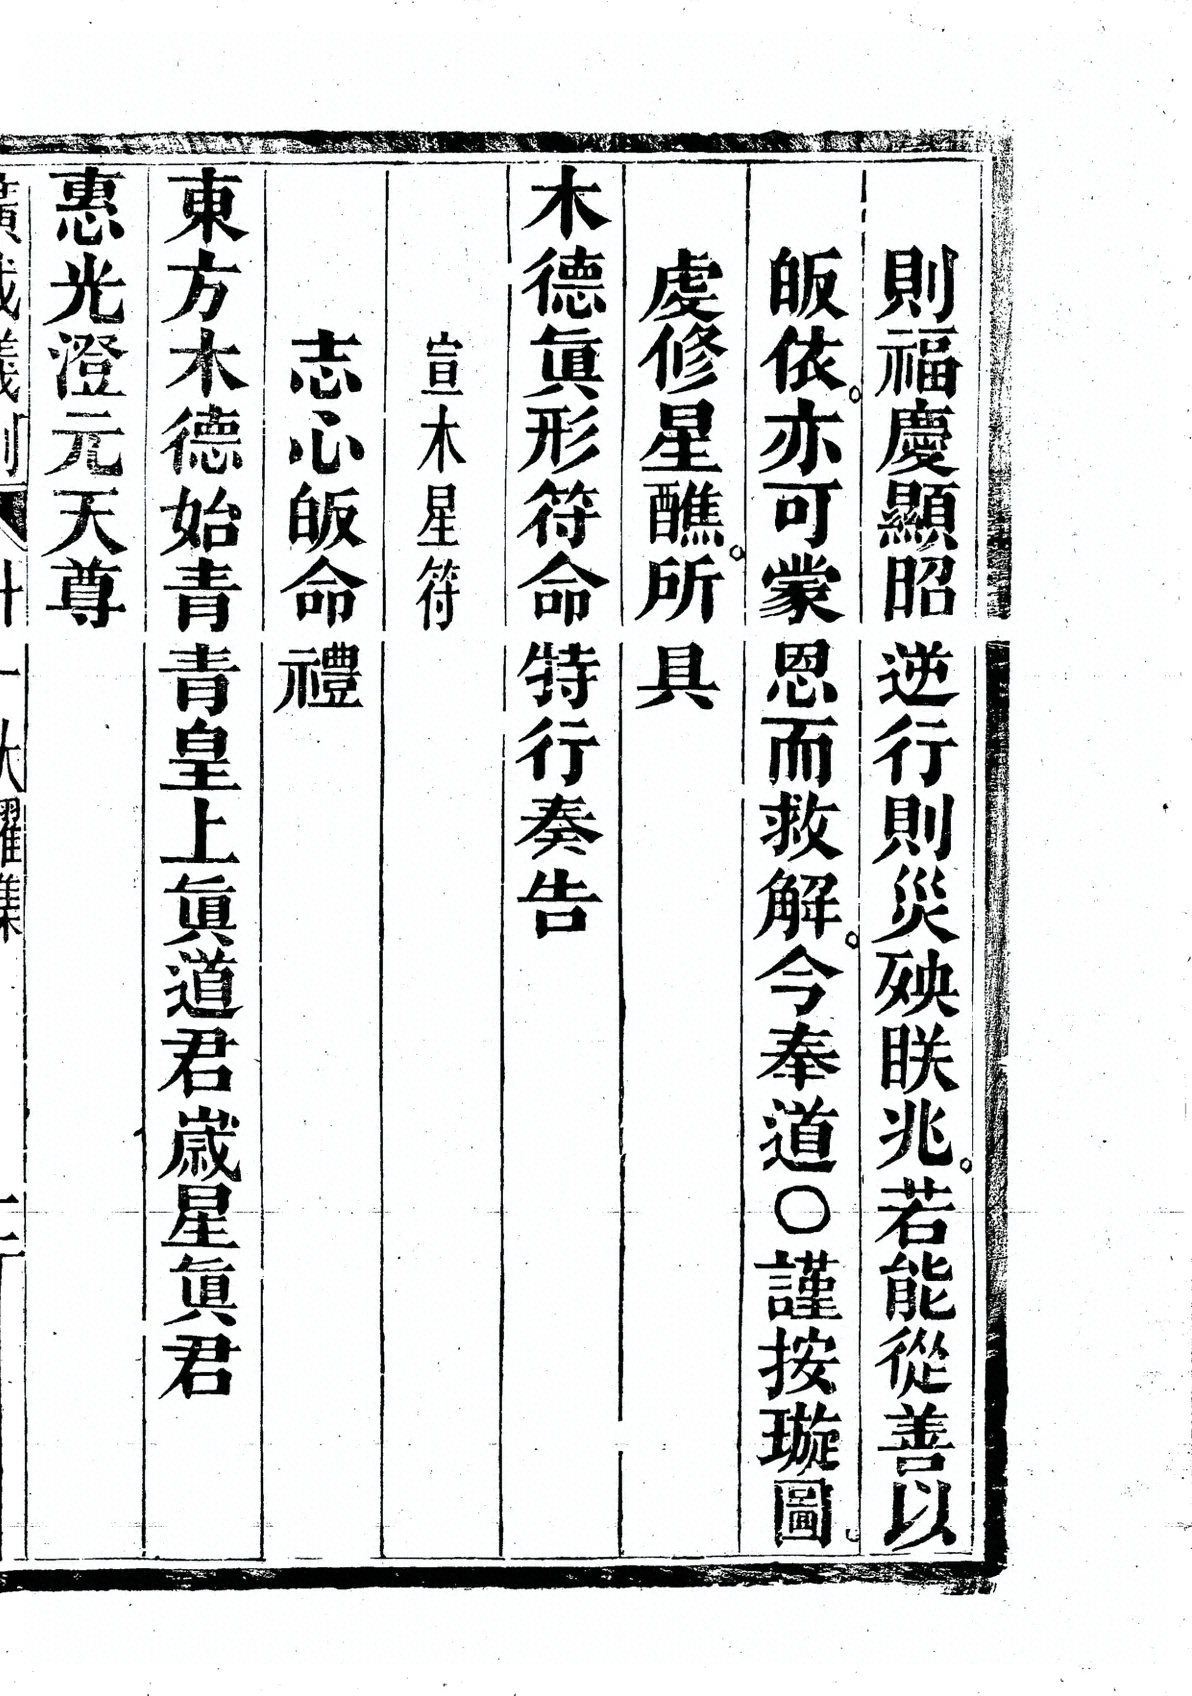 則福慶顯昭逆行則災殃眹兆。若能從善以
皈依。亦可蒙恩而救解。今奉道〇謹按璇圖。
虔修星醮。所具
木德眞形符命特行奏告
宣木星符
志心皈命禮
東方木德始青青皇上眞道君歲星眞君
惠光澄元天尊